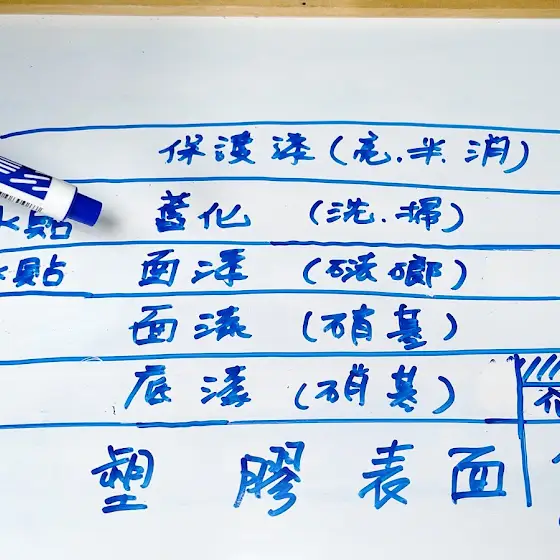 保護漆(亮.半.消)
水貼 舊化 (洗.掃)
水貼 面漆 (琺瑯)
面漆 (硝基)
底漆 (硝基)
塑膠表面